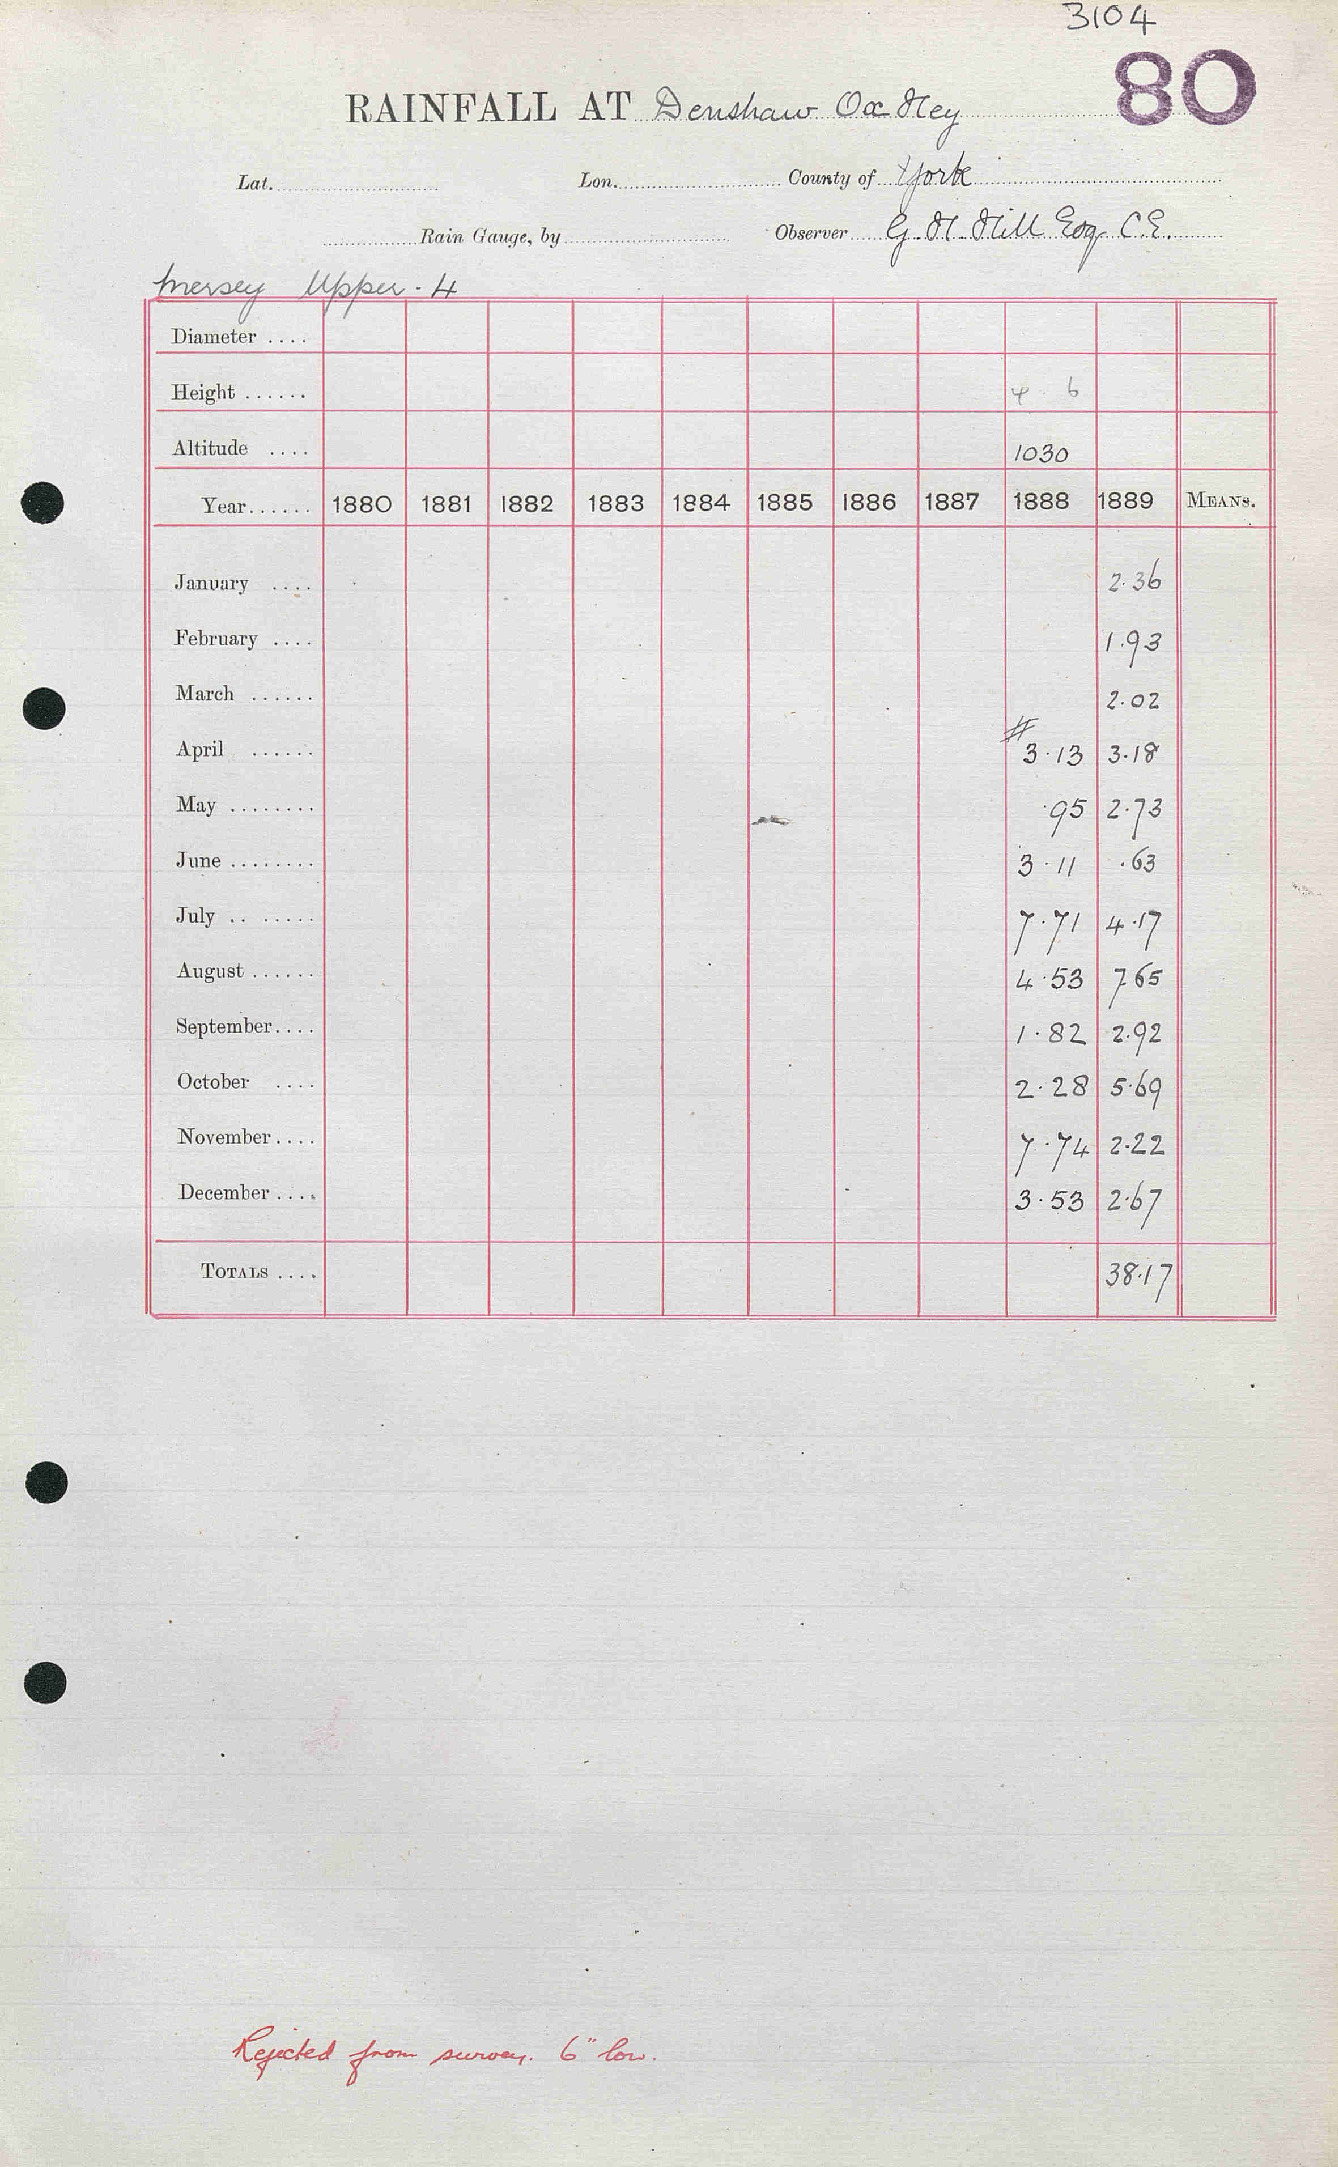 3104
80
RAINFALL AT Denshaw Ox Hey
Lat. Lon. County of York
Rain Gauge, by Observer G. H. Hill Esq. C.E.
Mersey Upper. 4
Diameter ....
Height ...... 4 6
Altitude .... 1030
Year...... 1880 1881 1882 1883 1884 1885 1886 1887 1888 1889 MEANS.
January .... 2.36
February .... 1.93
March ...... 2.02
#
April ...... 3.13 3.18
May ........ .95 2.73
June ........ 3.11 .63
July .. ...... 7.71 4.17
August ...... 4.53 7.65
September.... 1.82 2.92
October .... 2.28 5.69
November .... 7.74 2.22
December .... 3.53 2.67
TOTALS .... 38.17
Rejected from survey. 6" low.